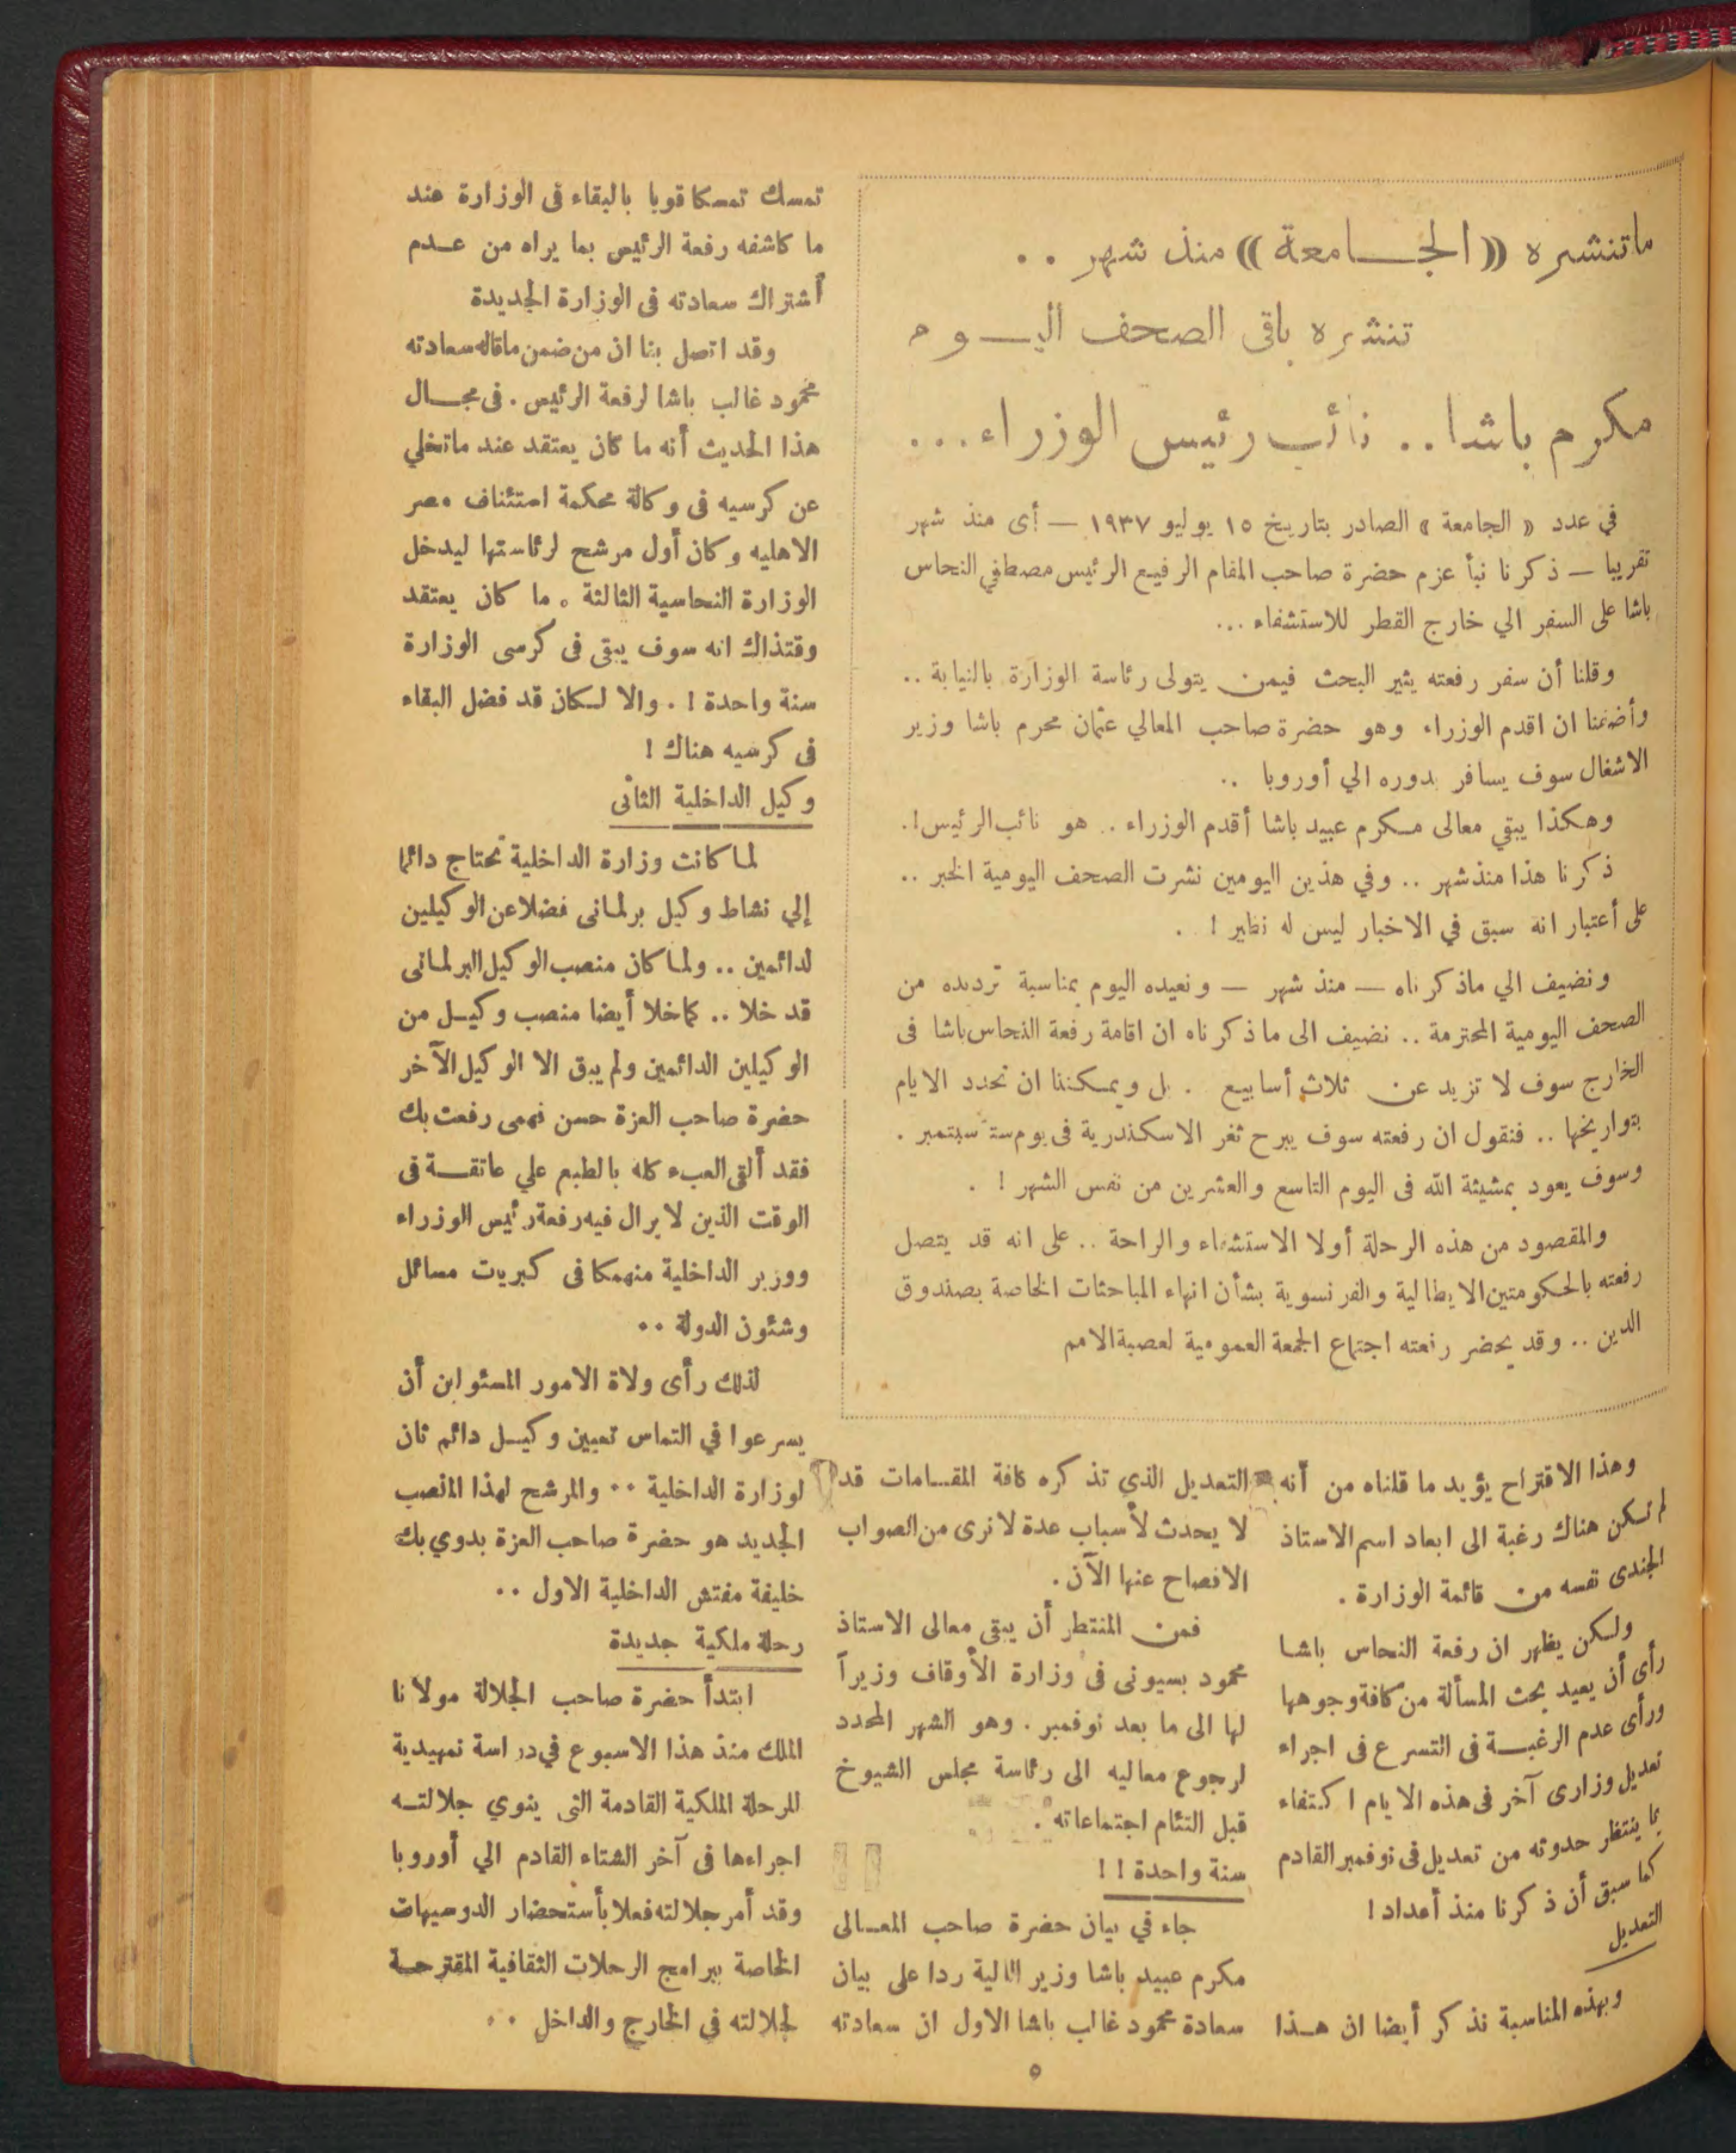 ماتنشره «الجــامعة» منذ شهر ..
تنشره باقى الصحف اليــوم
مكرم باشا .. نائب رئيس الوزراء ...
في عدد « الجامعة » الصادر بتاريخ ١٥ يوليو ١٩٣٧ — أى منذ شهر
تقريبا — ذكرنا نبأ عزم حضرة صاحب المقام الرفيع الرئيس مصطفي النحاس
باشا على السفر الي خارج القطر للاستشفاء ...
وقلنا أن سفر رفعته يثير البحث فيمن يتولى رئاسة الوزارة بالنيابة ..
وأضفنا ان اقدم الوزراء وهو حضرة صاحب المعالي عثمان محرم باشا وزير
الاشغال سوف يسافر بدوره الي أوروبا ..
وهكذا يبقي معالى مكرم عبيد باشا أقدم الوزراء .. هو نائب الرئيس !.
ذكرنا هذا منذ شهر .. وفي هذين اليومين نشرت الصحف اليومية الخبر ..
على أعتبار انه سبق في الاخبار ليس له نظير ! .
ونضيف الي ماذكرناه — منذ شهر — ونعيده اليوم بمناسبة ترديده من
الصحف اليومية المحترمة .. نضيف الى ما ذكرناه ان اقامة رفعة النحاس باشا فى
الخارج سوف لا تزيد عن ثلاث أسابيع . بل ويمكننا ان نحدد الايام
بتواريخها .. فنقول ان رفعته سوف يبرح ثغر الاسكندرية فى يوم ستة سبتمبر .
وسوف يعود بمشيئة الله فى اليوم التاسع والعشرين من نفس الشهر ! .
والمقصود من هذه الرحلة أولا الاستشفاء والراحة .. على انه قد يتصل
رفعته بالحكومتين الايطالية والفرنسوية بشأن انهاء المباحثات الخاصة بصندوق
الدين .. وقد يحضر رفعته اجتماع الجمعة العمومية لعصبة الامم
وهذا الاقتراح يؤيد ما قلناه من أنه
لم تكن هناك رغبة الى ابعاد اسم الاستاذ
الجندى نفسه من قائمة الوزارة .
ولكن يظهر ان رفعة النحاس باشا
رأى أن يعيد بحث المسألة من كافة وجوهها
ورأى عدم الرغبــة فى التسرع فى اجراء
تعديل وزارى آخر فى هذه الايام اكتفاء
بما ينتظر حدوثه من تعديل فى نوفمبر القادم
كما سبق أن ذكرنا منذ أعداد !
التعديل
وبهذه المناسبة نذكر أيضا ان هــذا
التعديل الذي تذكره كافة المقــامات قد
لا يحدث لأسباب عدة لا نرى من الصواب
الافصاح عنها الآن .
فمن المنتظر أن يبقى معالى الاستاذ
محمود بسيونى فى وزارة الأوقاف وزيراً
لها الى ما بعد نوفمبر . وهو الشهر المحدد
لرجوع معاليه الى رئاسة مجلس الشيوخ
قبل التئام اجتماعاته .
سنة واحدة ! !
جاء في بيان حضرة صاحب المعــالى
مكرم عبيد باشا وزير المالية ردا على بيان
سعادة محمود غالب باشا الاول ان سعادته
تمسك تمسكا قويا بالبقاء فى الوزارة عند
ما كاشفه رفعة الرئيس بما يراه من عــدم
أشتراك سعادته فى الوزارة الجديدة
وقد اتصل بنا ان من ضمن ماقاله سعادته
محمود غالب باشا لرفعة الرئيس . فى مجــال
هذا الحديث أنه ما كان يعتقد عند ماتخلي
عن كرسيه فى وكالة محكمة استئناف مصر
الاهليه وكان أول مرشح لرئاستها ليدخل
الوزارة النحاسية الثالثة . ما كان يعتقد
وقتذاك انه سوف يبقى فى كرسى الوزارة
سنة واحدة ! . والا لكان قد فضل البقاء
فى كرسيه هناك !
وكيل الداخلية الثانى
لما كانت وزارة الداخلية تحتاج دائما
إلي نشاط وكيل برلمانى فضلا عن الوكيلين
لدائمين .. ولما كان منصب الوكيل البرلمانى
قد خلا .. كما خلا أيضا منصب وكيــل من
الوكيلين الدائمين ولم يبق الا الوكيل الآخر
حضرة صاحب العزة حسن فهمى رفعت بك
فقد ألقى العبء كله بالطبع علي عاتقــة فى
الوقت الذين لا يرال فيه رفعة رئيس الوزراء
ووزير الداخلية منهمكا فى كبريات مسائل
وشئون الدولة ..
لذلك رأى ولاة الامور المسئولين أن
يسرعوا في التماس تعيين وكيــل دائم ثان
لوزارة الداخلية .. والمرشح لهذا المنصب
الجديد هو حضرة صاحب العزة بدوي بك
خليفة مفتش الداخلية الاول ..
رحلة ملكية جديدة
ابتدأ حضرة صاحب الجلالة مولانا
الملك منذ هذا الاسبوع في دراسة تمهيدية
للرحلة الملكية القادمة التى ينوي جلالتــه
اجراءها فى آخر الشتاء القادم الي أوروبا
وقد أمر جلالته فعلا بأستحضار الدوسيهات
الخاصة ببرامج الرحلات الثقافية المقترحــة
لجلالته في الخارج والداخل ..
٥